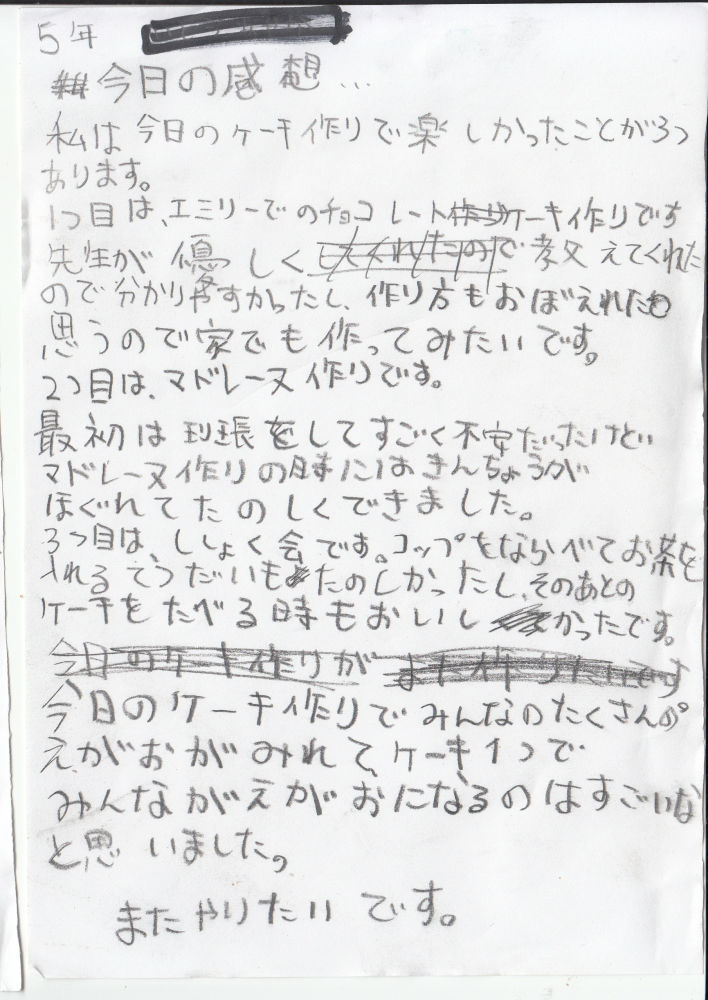 5年
今日の感想…
私は今日のケーキ作りで楽しかったことが3つ
あります。
1つ目は、エミリーでのチョコレートケーキ作りです
先生が優しく教えてくれた
ので分かりやすかったし、作り方もおぼえれたと
思うので家でも作ってみたいです。
2つ目は、マドレーヌ作りです。
最初は張をしてすごく不安だったけど
マドレーヌ作りの時にはきんちょうが
ほぐれてたのしくできました。
3つ目は、ししょく会です。コップをならべてお茶を
入れるてつだいもたのしかったし、そのあとの
ケーキをたべる時もおいしかったです。
今日のケーキ作りでみんなのたくさんの
えがおがみれて、ケーキ1つで
みんながえがおになるのはすごいな
と思いました。
またやりたいです。